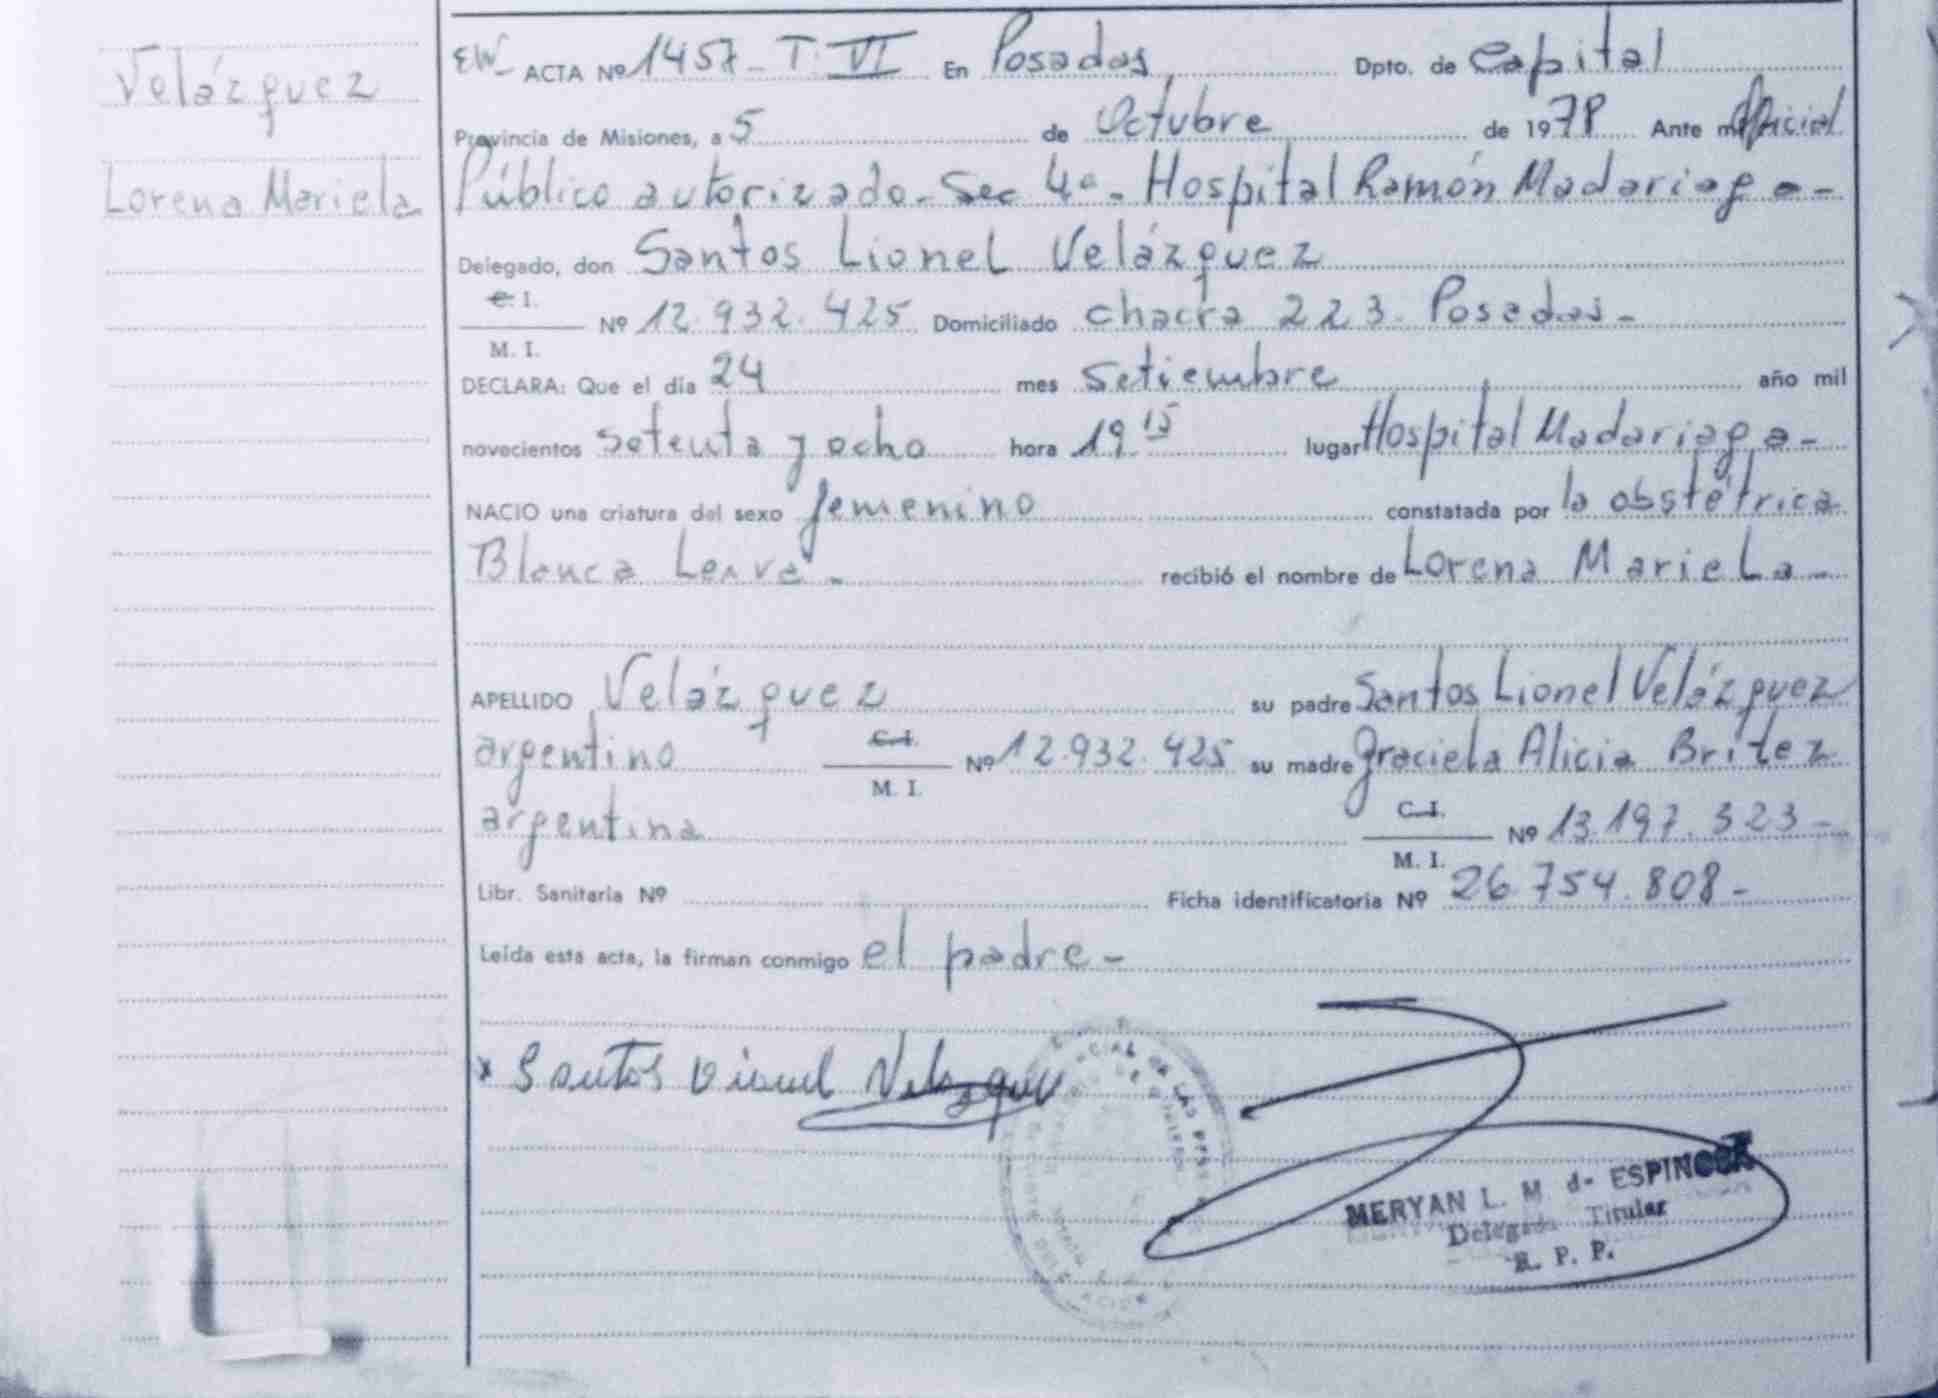 Velázquez
Lorena Mariela
EW- ACTA Nº 1457- T. VI En Posadas, Dpto. de Capital
Provincia de Misiones, a 5 de Octubre de 1978 Ante mí Oficial
Público autorizado- Sec 4ª- Hospital Ramón Madariaga-
Delegado, don Santos Lionel Velázquez
C. I.
Nº 12.932.425 Domiciliado chacra 223. Posadas-
M. I.
DECLARA: Que el día 24 mes Setiembre año mil
novecientos setenta y ocho hora 19 15 lugar Hospital Madariaga-
NACIO una criatura del sexo femenino constatada por la obstétrica
Blanca Leiva- recibió el nombre de Lorena Mariela-
APELLIDO Velázquez su padre Santos Lionel Velázquez
argentino C. I. Nº 12.932.425 su madre Graciela Alicia Britez
M. I.
argentina C. I. Nº 13.197.323-
M. I.
Libr. Sanitaria Nº Ficha identificatoria Nº 26.754.808-
Leída esta acta, la firman conmigo el padre-
x Santos Lionel Velazquez
MERYAN L. M. de ESPINOZA
Delegada Titular
R. P. P.